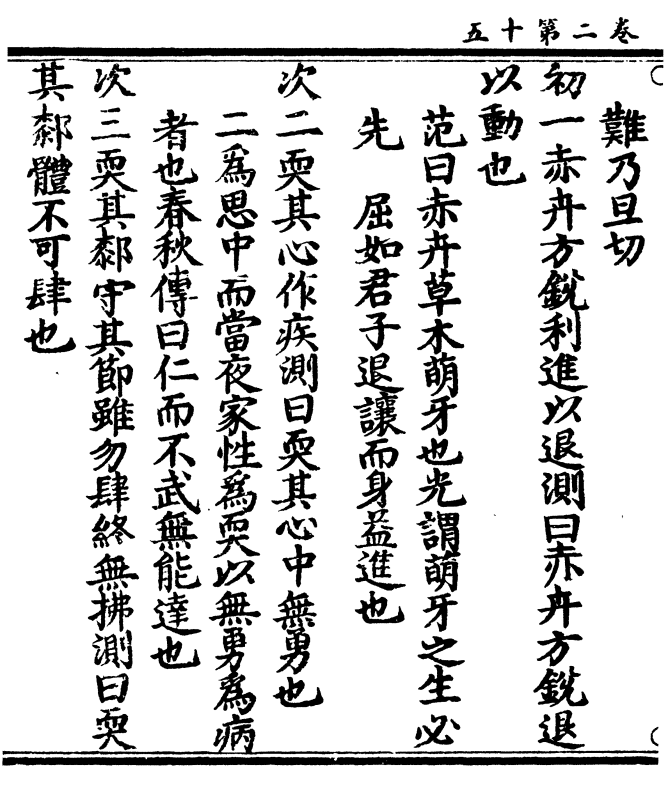 卷二第十五
難乃旦切
初一赤卉方銳利進以退測曰赤卉方銳退
以動也
范曰赤卉草木萌牙也光謂萌牙之生必
先　屈如君子退讓而身益進也
次二耎其心作疾測曰耎其心中無勇也
二為思中而當夜家性為耎以無勇為病
者也春秋傳曰仁而不武無能達也
次三耎其䣛守其節雖勿肆終無拂測曰耎
其䣛體不可肆也